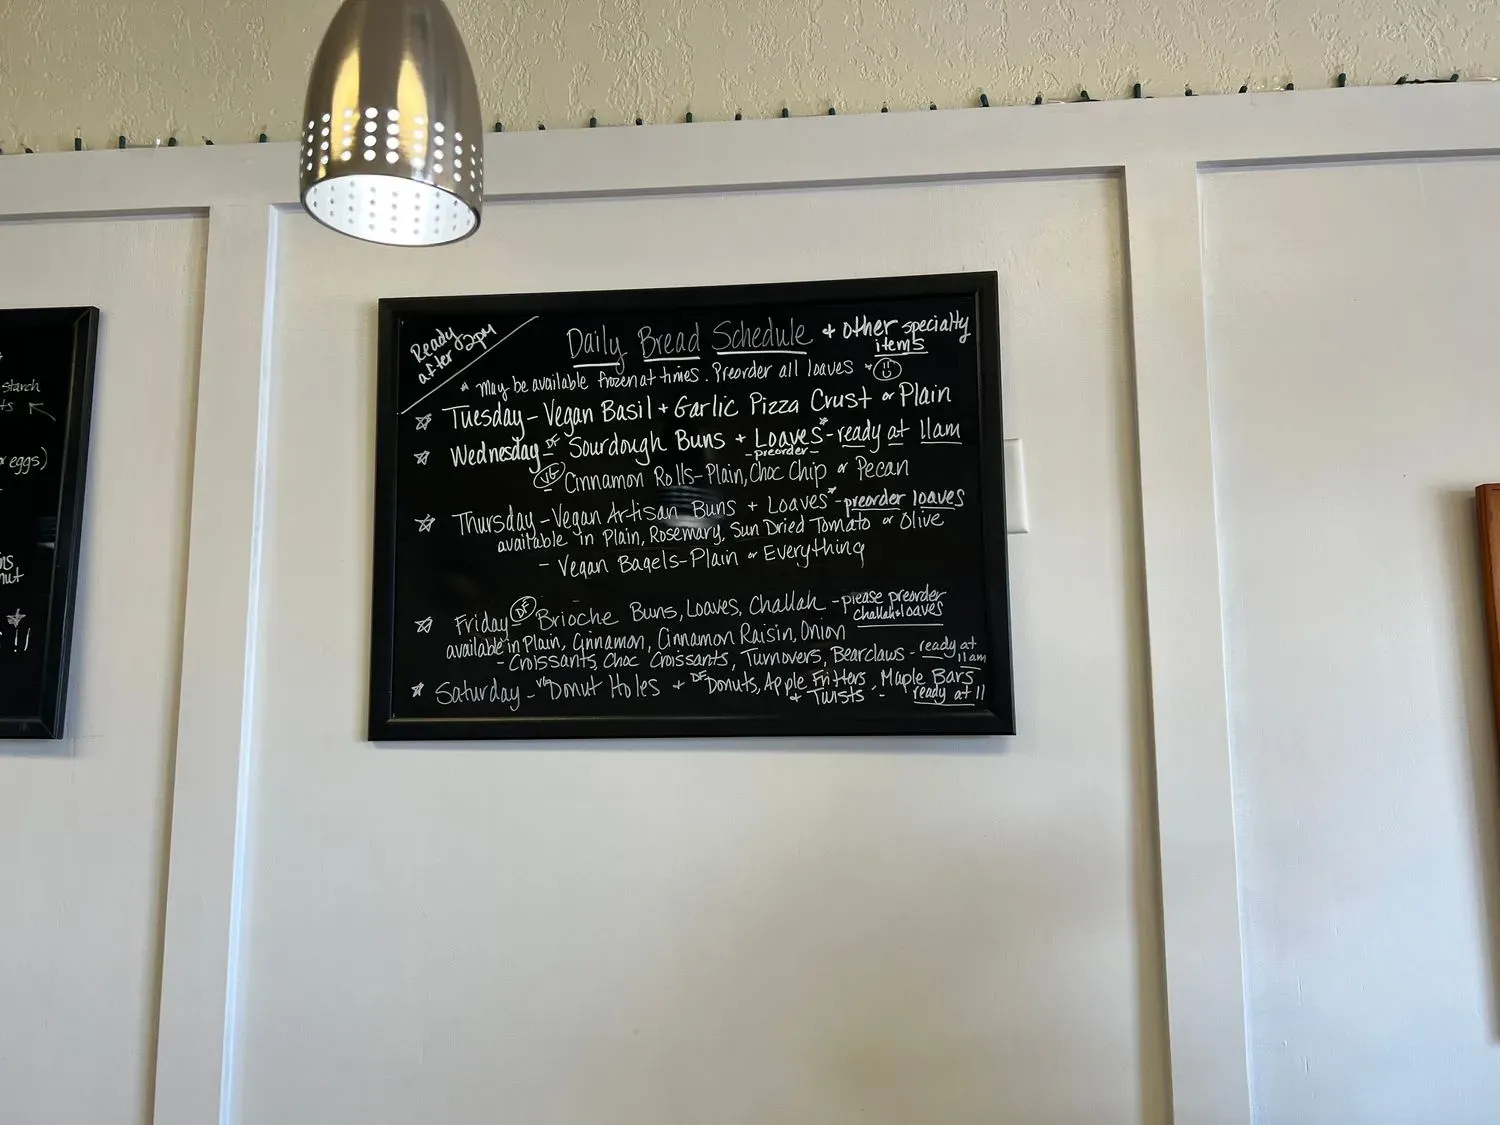 starch
ts
r eggs)
nut
!!
Ready
after 2pm
Daily Bread Schedule + other specialty
items
* may be available frozen at times. Preorder all loaves
☆ Tuesday - Vegan Basil + Garlic Pizza Crust or Plain
☆ Wednesday - DF Sourdough Buns + Loaves* - ready at 11am
- preorder -
VG Cinnamon Rolls - Plain, Choc Chip or Pecan
☆ Thursday - Vegan Artisan Buns + Loaves* - preorder loaves
available in Plain, Rosemary, Sun Dried Tomato or Olive
- Vegan Bagels - Plain or Everything
☆ Friday - DF Brioche Buns, Loaves, Challah - please preorder
challah + loaves
available in Plain, Cinnamon, Cinnamon Raisin, Onion
- Croissants, Choc Croissants, Turnovers, Bearclaws - ready at
11am
☆ Saturday - VG Donut Holes + DF Donuts, Apple Fritters, Maple Bars
+ Twists - ready at 11